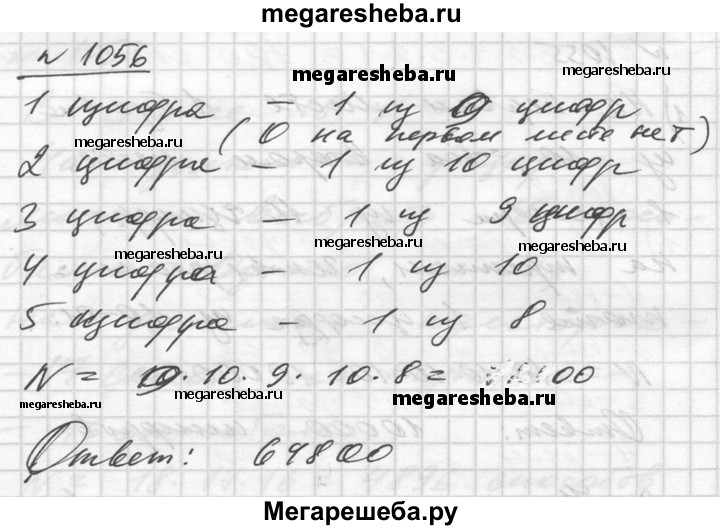 megaresheba.ru
№ 1056
megaresheba.ru
megaresheba.ru
1 цифра – 1 из 9 цифр
(0 на первом месте нет)
megaresheba.ru
2 цифра – 1 из 10 цифр
3 цифра – 1 из 9 цифр
megaresheba.ru
megaresheba.ru
4 цифра – 1 из 10
5 цифра – 1 из 8
N = 9 · 10 · 9 · 10 · 8 = 00
megaresheba.ru
megaresheba.ru
megaresheba.ru
Ответ: 64800
Мегарешеба.ру